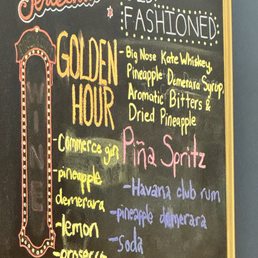 FASHIONED
GOLDEN
HOUR
- Big Nose Kate Whiskey,
Pineapple Demerara Syrup,
Aromatic Bitters &
Dried Pineapple
WINE
- Commerce gin
- pineapple
demerara
- lemon
- prosecco
Piña Spritz
- Havana club rum
- pineapple demerara
- soda